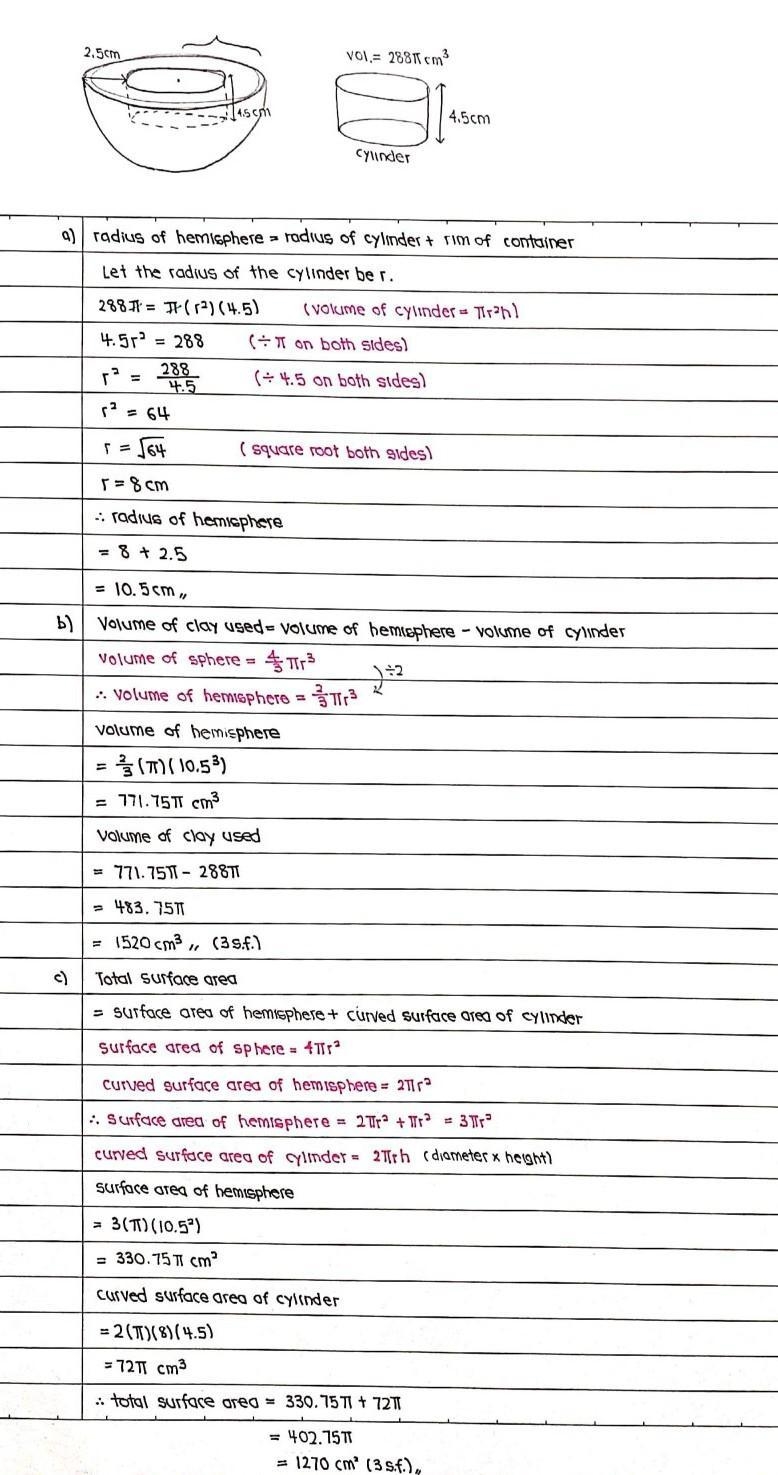 2.5cm
4.5cm
vol.= 288π cm³
4.5cm
cylinder
a) radius of hemisphere = radius of cylinder + rim of container
Let the radius of the cylinder be r.
288π = π(r²)(4.5) (volume of cylinder = πr²h)
4.5r² = 288 (÷π on both sides)
r² = 288/4.5 (÷ 4.5 on both sides)
r² = 64
r = √64 (square root both sides)
r = 8 cm
∴ radius of hemisphere
= 8 + 2.5
= 10.5cm,,
b) Volume of clay used = volume of hemisphere - volume of cylinder
volume of sphere = 4/3 πr³
∴ volume of hemisphere = 2/3 πr³ ÷2
volume of hemisphere
= 2/3 (π)(10.5³)
= 771.75π cm³
Volume of clay used
= 771.75π - 288π
= 483.75π
= 1520 cm³ ,, (3s.f.)
c) Total surface area
= surface area of hemisphere + curved surface area of cylinder
surface area of sphere = 4πr²
curved surface area of hemisphere = 2πr²
∴ surface area of hemisphere = 2πr² + πr² = 3πr²
curved surface area of cylinder = 2πrh (diameter x height)
surface area of hemisphere
= 3(π)(10.5²)
= 330.75π cm²
curved surface area of cylinder
= 2(π)(8)(4.5)
= 72π cm³
∴ total surface area = 330.75π + 72π
= 402.75π
= 1270 cm² (3s.f.),,